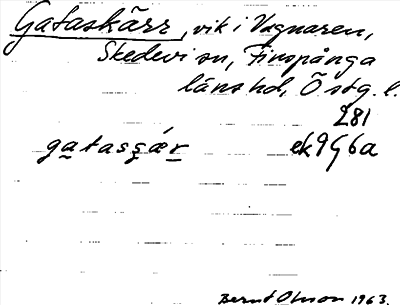 Gataskärr, vik i Vagnaren,
Skedevi sn, Finspånga
läns hd, Östg. l.
281
gatasʂǽr ek9G6a
Bernt Olsson 1963.